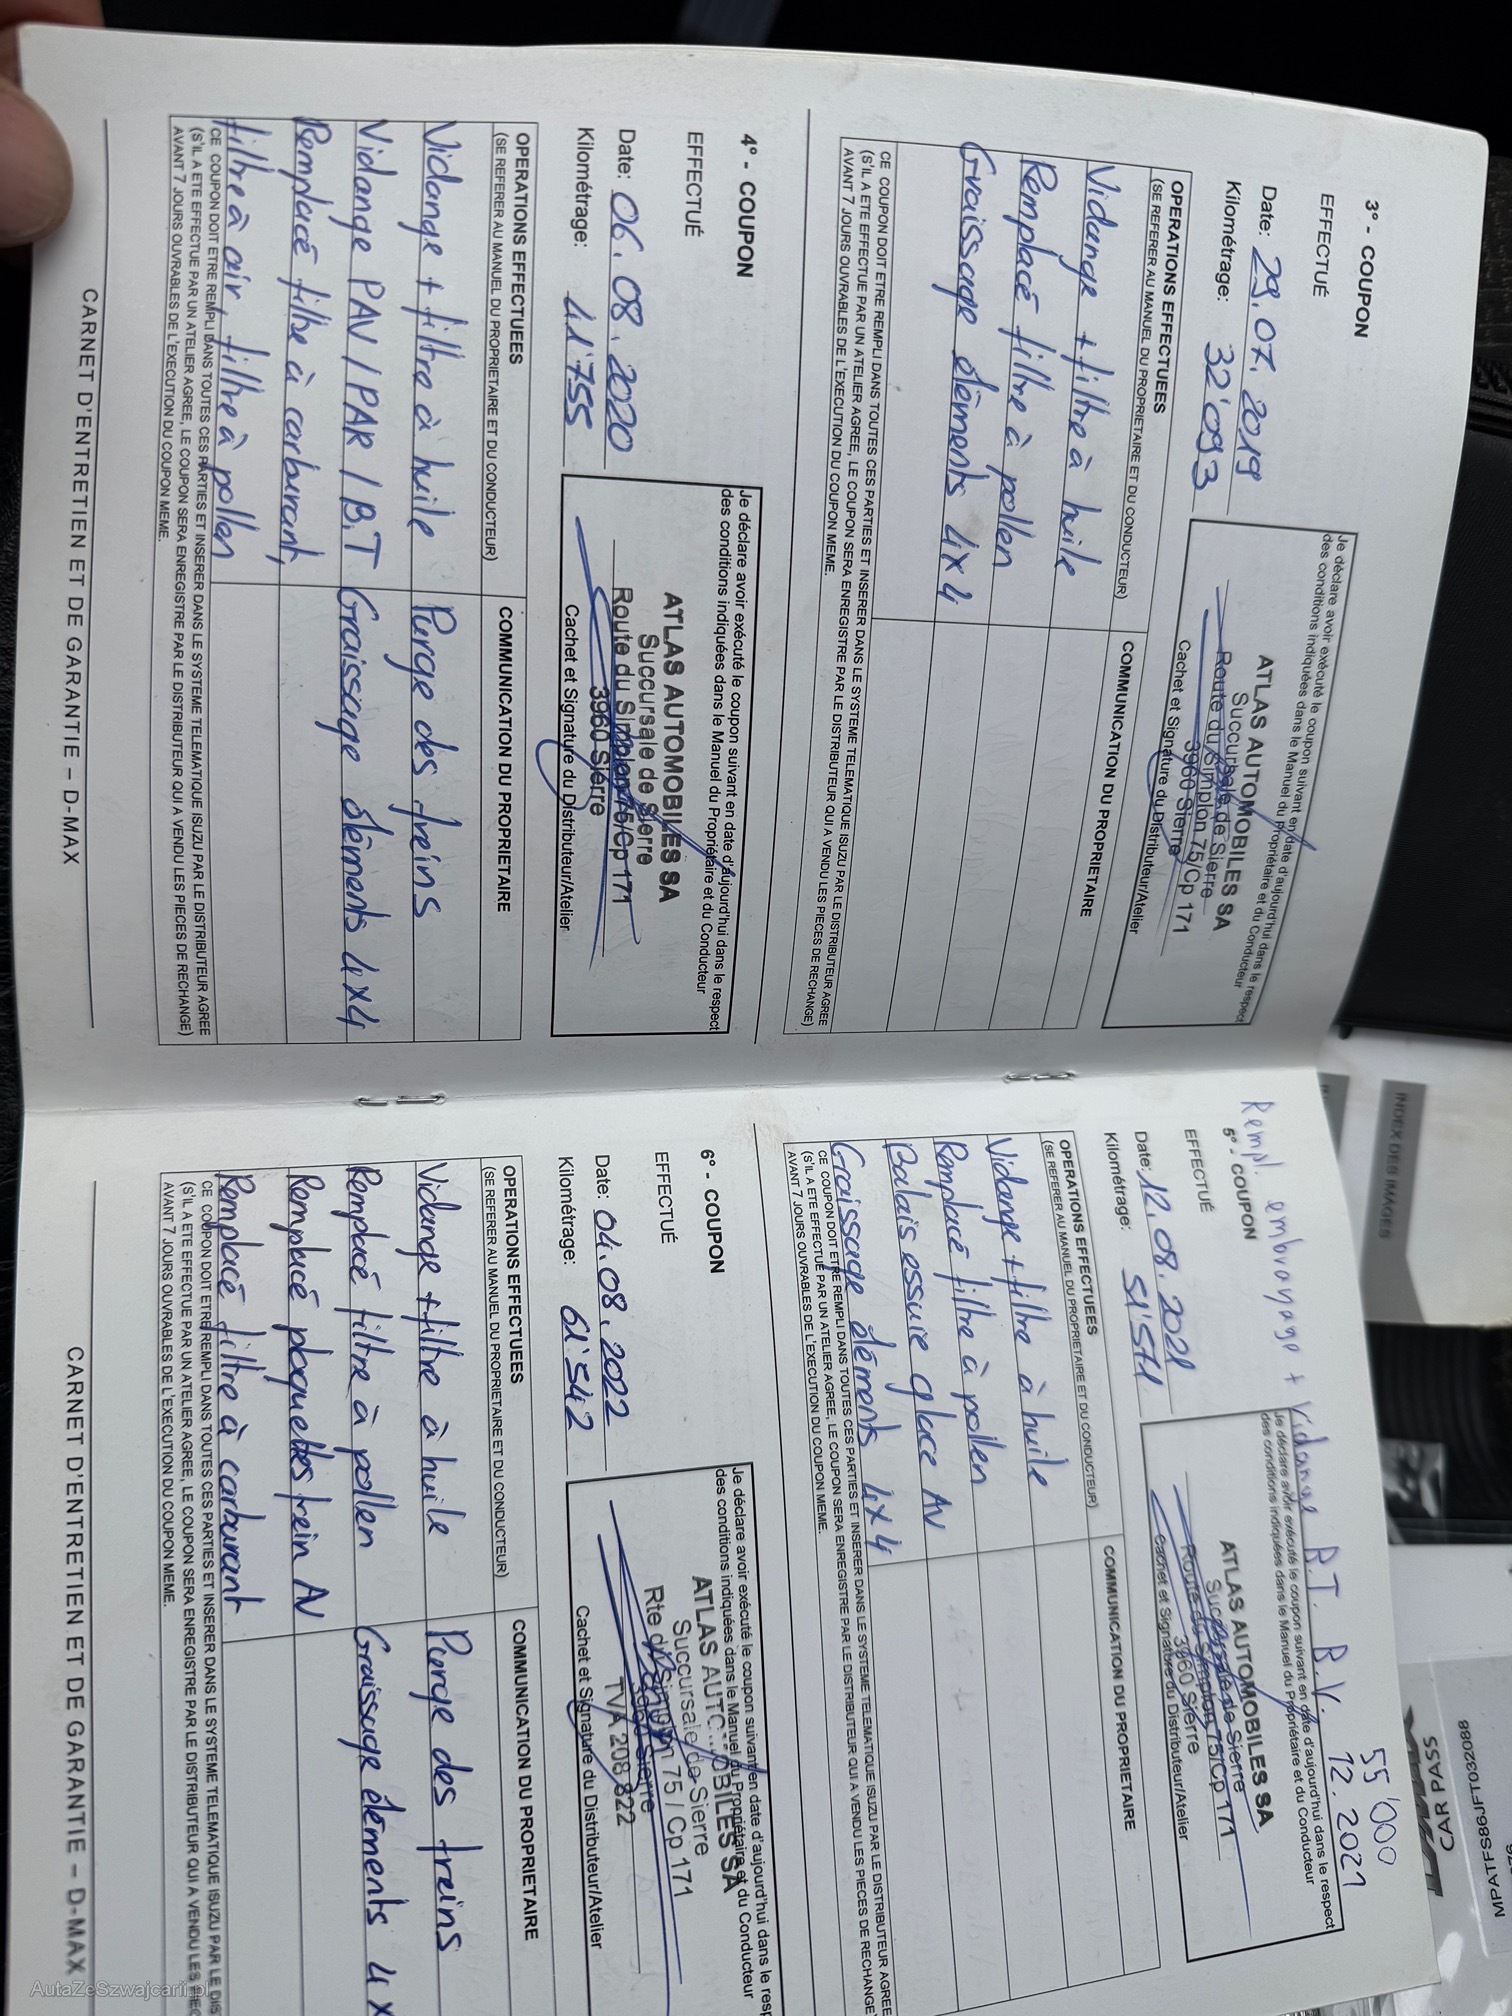 3° - COUPON
EFFECTUÉ
Date: 29.07.2019
Kilométrage: 32'093
Je déclare avoir exécuté le coupon suivant en date d'aujourd'hui dans le respect
des conditions indiquées dans le Manuel du Propriétaire et du Conducteur
ATLAS AUTOMOBILES SA
Succursale de Sierre
Route du Simplon 75/Cp 171
3960 Sierre
Cachet et Signature du Distributeur/Atelier
OPERATIONS EFFECTUEES
(SE REFERER AU MANUEL DU PROPRIETAIRE ET DU CONDUCTEUR)
COMMUNICATION DU PROPRIETAIRE
Vidange + filtre à huile
Remplacé filtre à pollen
Graissage éléments 4x4
CE COUPON DOIT ETRE REMPLI DANS TOUTES CES PARTIES ET INSERER DANS LE SYSTEME TELEMATIQUE ISUZU PAR LE DISTRIBUTEUR AGREE
(S'IL A ETE EFFECTUE PAR UN ATELIER AGREE, LE COUPON SERA ENREGISTRE PAR LE DISTRIBUTEUR QUI A VENDU LES PIECES DE RECHANGE)
AVANT 7 JOURS OUVRABLES DE L'EXECUTION DU COUPON MEME.
4° - COUPON
EFFECTUÉ
Date: 06.08.2020
Kilométrage: 41'755
Je déclare avoir exécuté le coupon suivant en date d'aujourd'hui dans le respect
des conditions indiquées dans le Manuel du Propriétaire et du Conducteur
ATLAS AUTOMOBILES SA
Succursale de Sierre
Route du Simplon 75/Cp 171
3960 Sierre
Cachet et Signature du Distributeur/Atelier
OPERATIONS EFFECTUEES
(SE REFERER AU MANUEL DU PROPRIETAIRE ET DU CONDUCTEUR)
COMMUNICATION DU PROPRIETAIRE
Vidange + filtre à huile Purge des freins
Vidange PAV / PAR / B.T Graissage éléments 4x4
Remplacé filtre à carburant,
filtre à air, filtre à pollen
CE COUPON DOIT ETRE REMPLI DANS TOUTES CES PARTIES ET INSERER DANS LE SYSTEME TELEMATIQUE ISUZU PAR LE DISTRIBUTEUR AGREE
(S'IL A ETE EFFECTUE PAR UN ATELIER AGREE, LE COUPON SERA ENREGISTRE PAR LE DISTRIBUTEUR QUI A VENDU LES PIECES DE RECHANGE)
AVANT 7 JOURS OUVRABLES DE L'EXECUTION DU COUPON MEME.
CARNET D'ENTRETIEN ET DE GARANTIE – D-MAX
55'000
12.2021
Rempl. embrayage + Vidange B.T. B.V.
5° - COUPON
EFFECTUÉ
Date: 12.08.2021
Kilométrage: 51'571
Je déclare avoir exécuté le coupon suivant en date d'aujourd'hui dans le respect
des conditions indiquées dans le Manuel du Propriétaire et du Conducteur
ATLAS AUTOMOBILES SA
Succursale de Sierre
Route du Simplon 75/Cp 171
3960 Sierre
Cachet et Signature du Distributeur/Atelier
OPERATIONS EFFECTUEES
(SE REFERER AU MANUEL DU PROPRIETAIRE ET DU CONDUCTEUR)
COMMUNICATION DU PROPRIETAIRE
Vidange + filtre à huile
Remplacé filtre à pollen
Balais essuie glace AV
Graissage éléments 4x4
CE COUPON DOIT ETRE REMPLI DANS TOUTES CES PARTIES ET INSERER DANS LE SYSTEME TELEMATIQUE ISUZU PAR LE DISTRIBUTEUR AGREE
(S'IL A ETE EFFECTUE PAR UN ATELIER AGREE, LE COUPON SERA ENREGISTRE PAR LE DISTRIBUTEUR QUI A VENDU LES PIECES DE RECHANGE)
AVANT 7 JOURS OUVRABLES DE L'EXECUTION DU COUPON MEME.
6° - COUPON
EFFECTUÉ
Date: 04.08.2022
Kilométrage: 61'542
Je déclare avoir exécuté le coupon suivant en date d'aujourd'hui dans le
des conditions indiquées dans le Manuel du Propriétaire et du Conducteur
ATLAS AUTOMOBILES SA
Succursale de Sierre
Rte du Simplon 75 / Cp 171
3960 Sierre
TVA 208 822
Cachet et Signature du Distributeur/Atelier
OPERATIONS EFFECTUEES
(SE REFERER AU MANUEL DU PROPRIETAIRE ET DU CONDUCTEUR)
COMMUNICATION DU PROPRIETAIRE
Vidange + filtre à huile Purge des freins
Remplacé filtre à pollen Graissage éléments 4x
Remplacé plaquettes frein AV
Remplacé filtre à carburant
CE COUPON DOIT ETRE REMPLI DANS TOUTES CES PARTIES ET INSERER DANS LE SYSTEME TELEMATIQUE ISUZU PAR LE
(S'IL A ETE EFFECTUE PAR UN ATELIER AGREE, LE COUPON SERA ENREGISTRE PAR LE DISTRIBUTEUR QUI A VENDU LES
AVANT 7 JOURS OUVRABLES DE L'EXECUTION DU COUPON MEME.
CARNET D'ENTRETIEN ET DE GARANTIE – D-MAX
INDEX DES IMAGES
CAR PASS
MPATFS86JFT032088
AutaZeSzwajcarii.pl